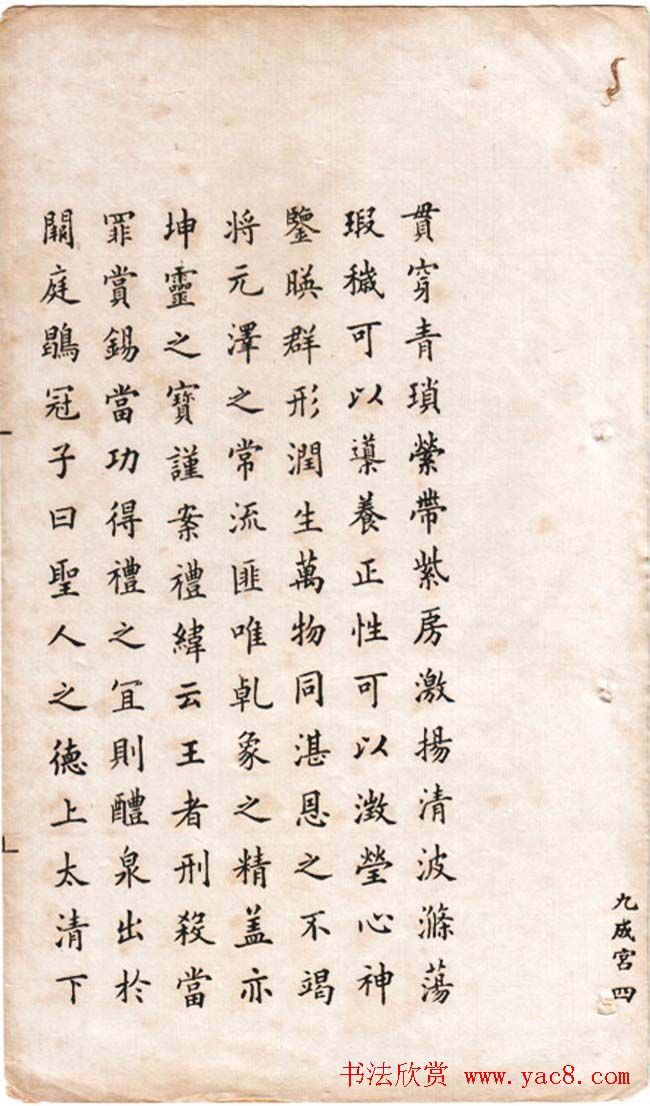 九成宮 四
貫穿青瑣縈帶紫房激揚清波滌蕩
瑕穢可以導養正性可以澂瑩心神
鑒暎群形潤生萬物同湛恩之不竭
将元澤之常流匪唯乹象之精盖亦
坤靈之寶謹案禮緯云王者刑殺當
罪賞錫當功得禮之宜則醴泉出於
闕庭鶡冠子曰聖人之德上太清下
书法欣赏 www.yac8.com